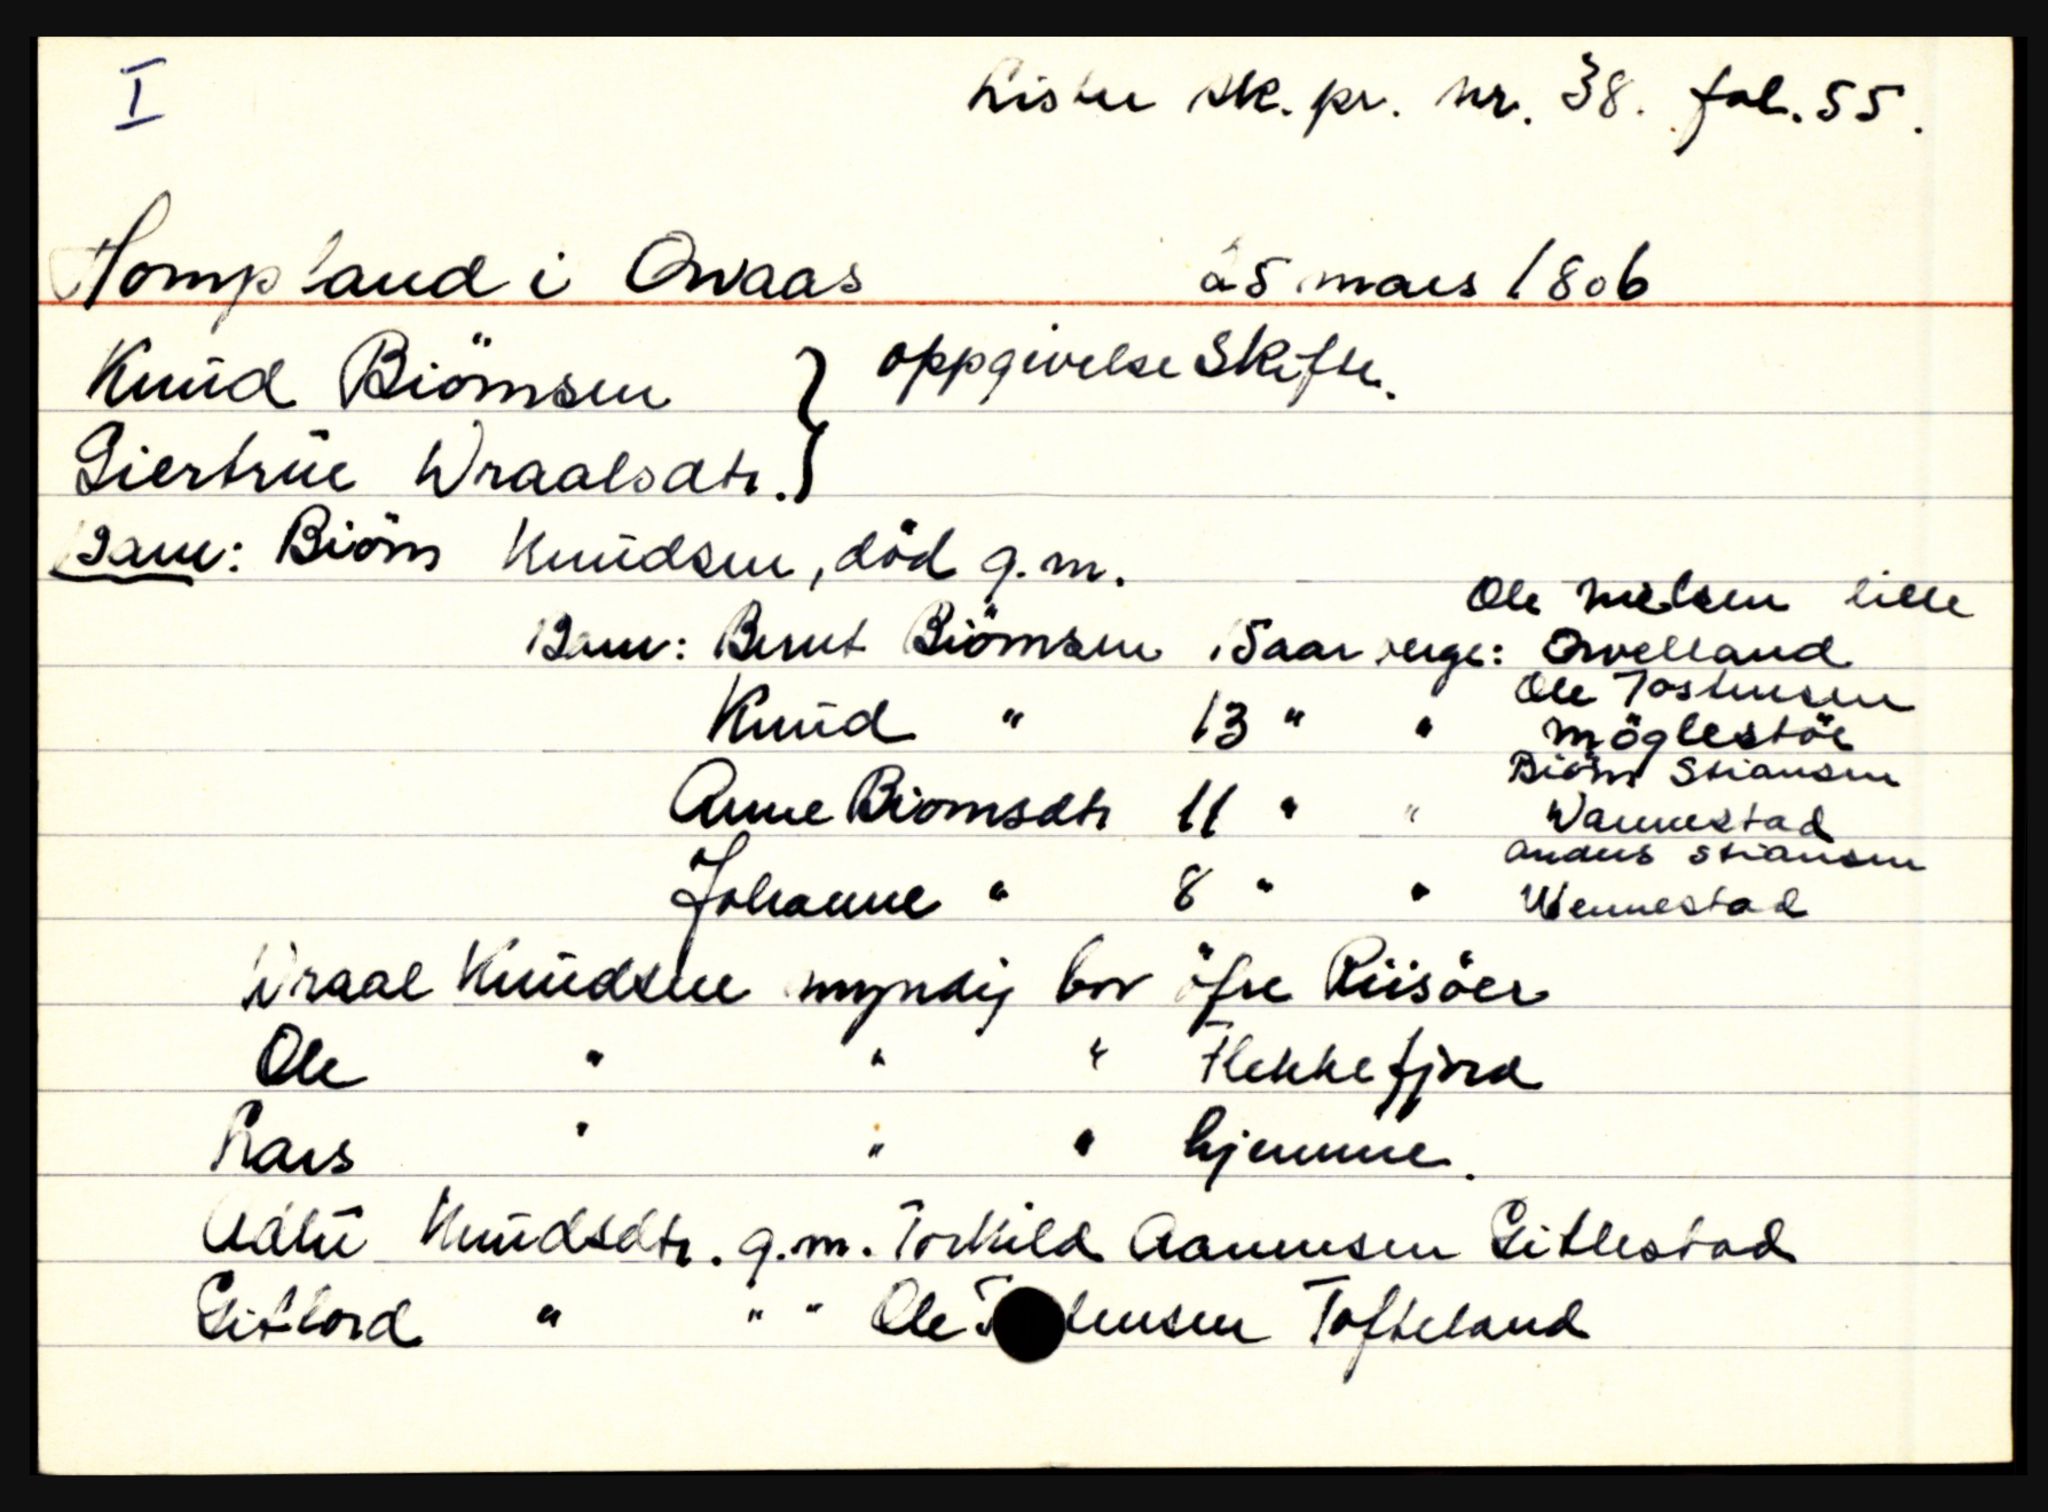 I
Lister sk. pr. nr. 38. fol. 55.
Hompland i Qvaas 25 mars 1806
Knud Biörnsen } oppgivelse Skifte.
Giertrue Wraalsdtr. }
Barn: Biörn Knudsen, död g.m.
Ole Nielsen lille
Barn: Bernt Biörnsen 15 aar verge: Qvelland
Ole Tostensen
Knud " 13 " " Möglestöe
Biörn Stiansen
Anne Biornsdtr 11 " " Wannestad
Anders Stiansen
Johanne " 8 " " Wennestad
Wraal Knudsen myndig bor öfre Riisöer
Ole " " " Flekkefjord
Lars " " " hjemme.
Adlu Knudsdtr. g.m. Torkild Aanensen Gitlestad
Gitlord " " " Ole tensen Tofteland